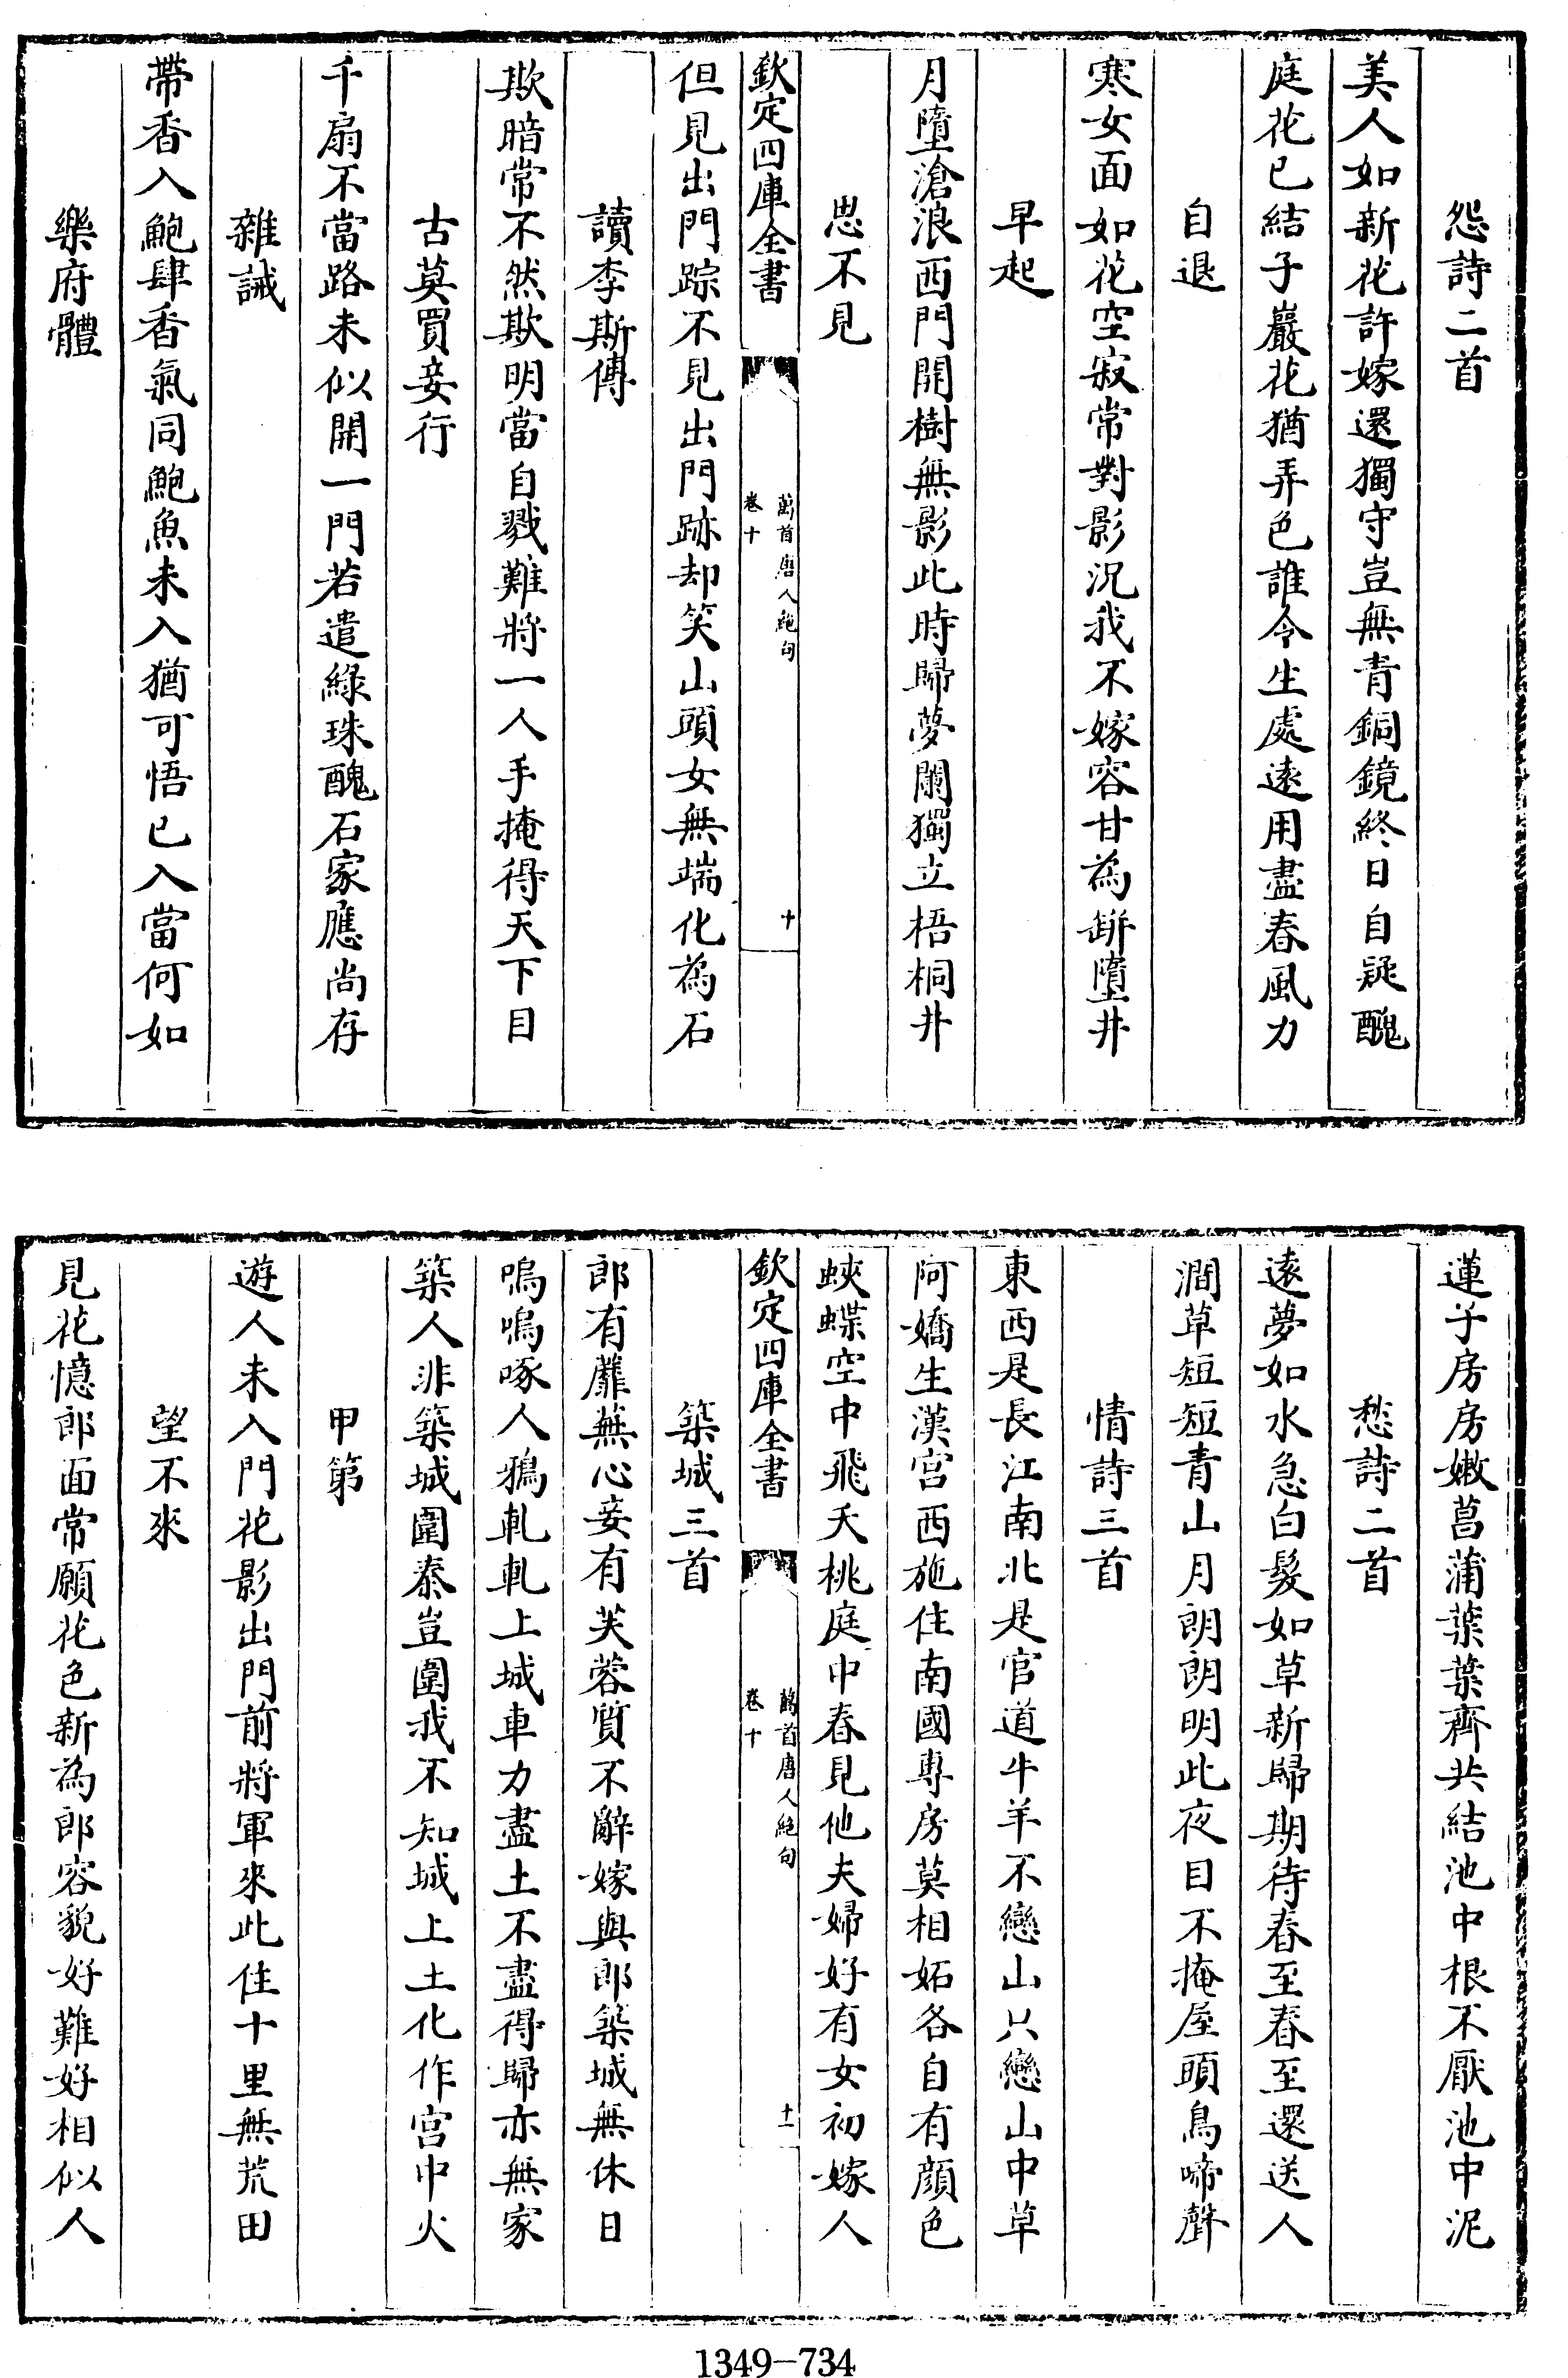 怨詩二首
美人如新花許嫁還獨守豈無青銅鏡終日自疑醜
庭花已結子巖花猶弄色誰令生處遠用盡春風力
自退
寒女面如花空寂常對影況我不嫁容甘為缾墮井
早起
月墮滄浪西門開樹無影此時歸夢闌獨立梧桐井
思不見
欽定四庫全書
萬首唐人絕句
卷十
十
但見出門踪不見出門跡却笑山頭女無端化為石
讀李斯傳
欺暗常不然欺明當自戮難將一人手掩得天下目
古莫買妾行
千扇不當路未似開一門若遣綠珠醜石家應尚存
雜誡
帶香入鮑肆香氣同鮑魚未入猶可悟已入當何如
樂府體
蓮子房房嫩菖蒲葉葉齊共結池中根不厭池中泥
愁詩二首
遠夢如水急白髮如草新歸期待春至春至還送人
澗草短短青山月朗朗明此夜目不掩屋頭烏啼聲
情詩三首
東西是長江南北是官道牛羊不戀山只戀山中草
阿嬌生漢宮西施住南國專房莫相妬各自有顏色
蛺蝶空中飛夭桃庭中春見他夫婦好有女初嫁人
欽定四庫全書
萬首唐人絕句
卷十
十一
築城三首
郎有蘼蕪心妾有芙蓉質不辭嫁與郎築城無休日
嗚嗚啄人鴉軋軋上城車力盡土不盡得歸亦無家
築人非築城圍秦豈圍我不知城上土化作宮中火
甲第
遊人未入門花影出門前將軍來此住十里無荒田
望不來
見花憶郎面常願花色新為郎容貌好難好相似人
1349-734